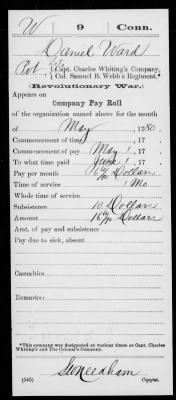 W 9 Conn.
Daniel Ward
Pvt, Capt. Charles Whiting's Company,
Col. Samuel B. Webb's Regiment.*
(Revolutionary War.)
Appears on
Company Pay Roll
of the organization named above for the month
of May, 1780
Commencement of time, 17
Commencement of pay May 1, 17
To what time paid June 1, 17
Pay per month 6 6/90 Dollars
Time of service 1 Mo
Whole time of service
Subsistence 10 Dollars
Amount 16 6/90 Dollars
Amt. of pay and subsistence
Pay due to sick, absent
Casualties
Remarks:
*This company was designated at various times as Capt. Charles
Whiting's and The Colonel's Company.
Needham
(545) Copyist.